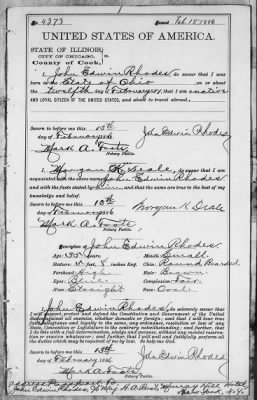 No. 4373 Issued Feb 15 1886
UNITED STATES OF AMERICA.
STATE OF ILLINOIS,
CITY OF CHICAGO,
County of Cook,
I, John Edwin Rhodes, do swear that I was
born in the State of Ohio on or about
the twelfth day of February, that I am a native
AND LOYAL CITIZEN OF THE UNITED STATES, and about to travel abroad.
Sworn to before me this 13th
day of February 1886 Jno Edwin Rhodes
Mark A. Foote
Notary Public.
I, Morgan K. Deale, do swear that I am
acquainted with the above named John Edwin Rhodes
and with the facts stated by him and that the same are true to the best of my
knowledge and belief.
Sworn to before me this 13th
day of February 1886 Morgan K Deale
Mark A. Foote
Notary Public.
Description of John Edwin Rhodes.
Age: 35 Years Mouth: Small
Stature: 5 feet, 8 inches Eng. Chin: Round, Bearded.
Forehead: High Hair: Brown
Eyes: Blue Complexion: Fair
Nose: Straight Face: Oval
I, John Edwin Rhodes, do solemnly swear that I
will support, protect and defend the Constitution and Government of the United
States against all enemies, whether domestic or foreign; and that I will bear true
faith, allegiance and loyalty to the same, any ordinance, resolution or law of any
State, Convention or Legislature to the contrary notwithstanding; and further, that
I do this with a full determination, pledge and purpose, without any mental reservation
or evasion whatsoever; and further, that I will well and faithfully perform all
the duties which may be required of me by law. So help me God.
Sworn to before me this 13th
day of February 1886 Jno Edwin Rhodes
Mark A. Foote
Notary Public.
Passport to
John Edwin Rhodes, H. A. Murray Hill Hotel
New York, N.Y.